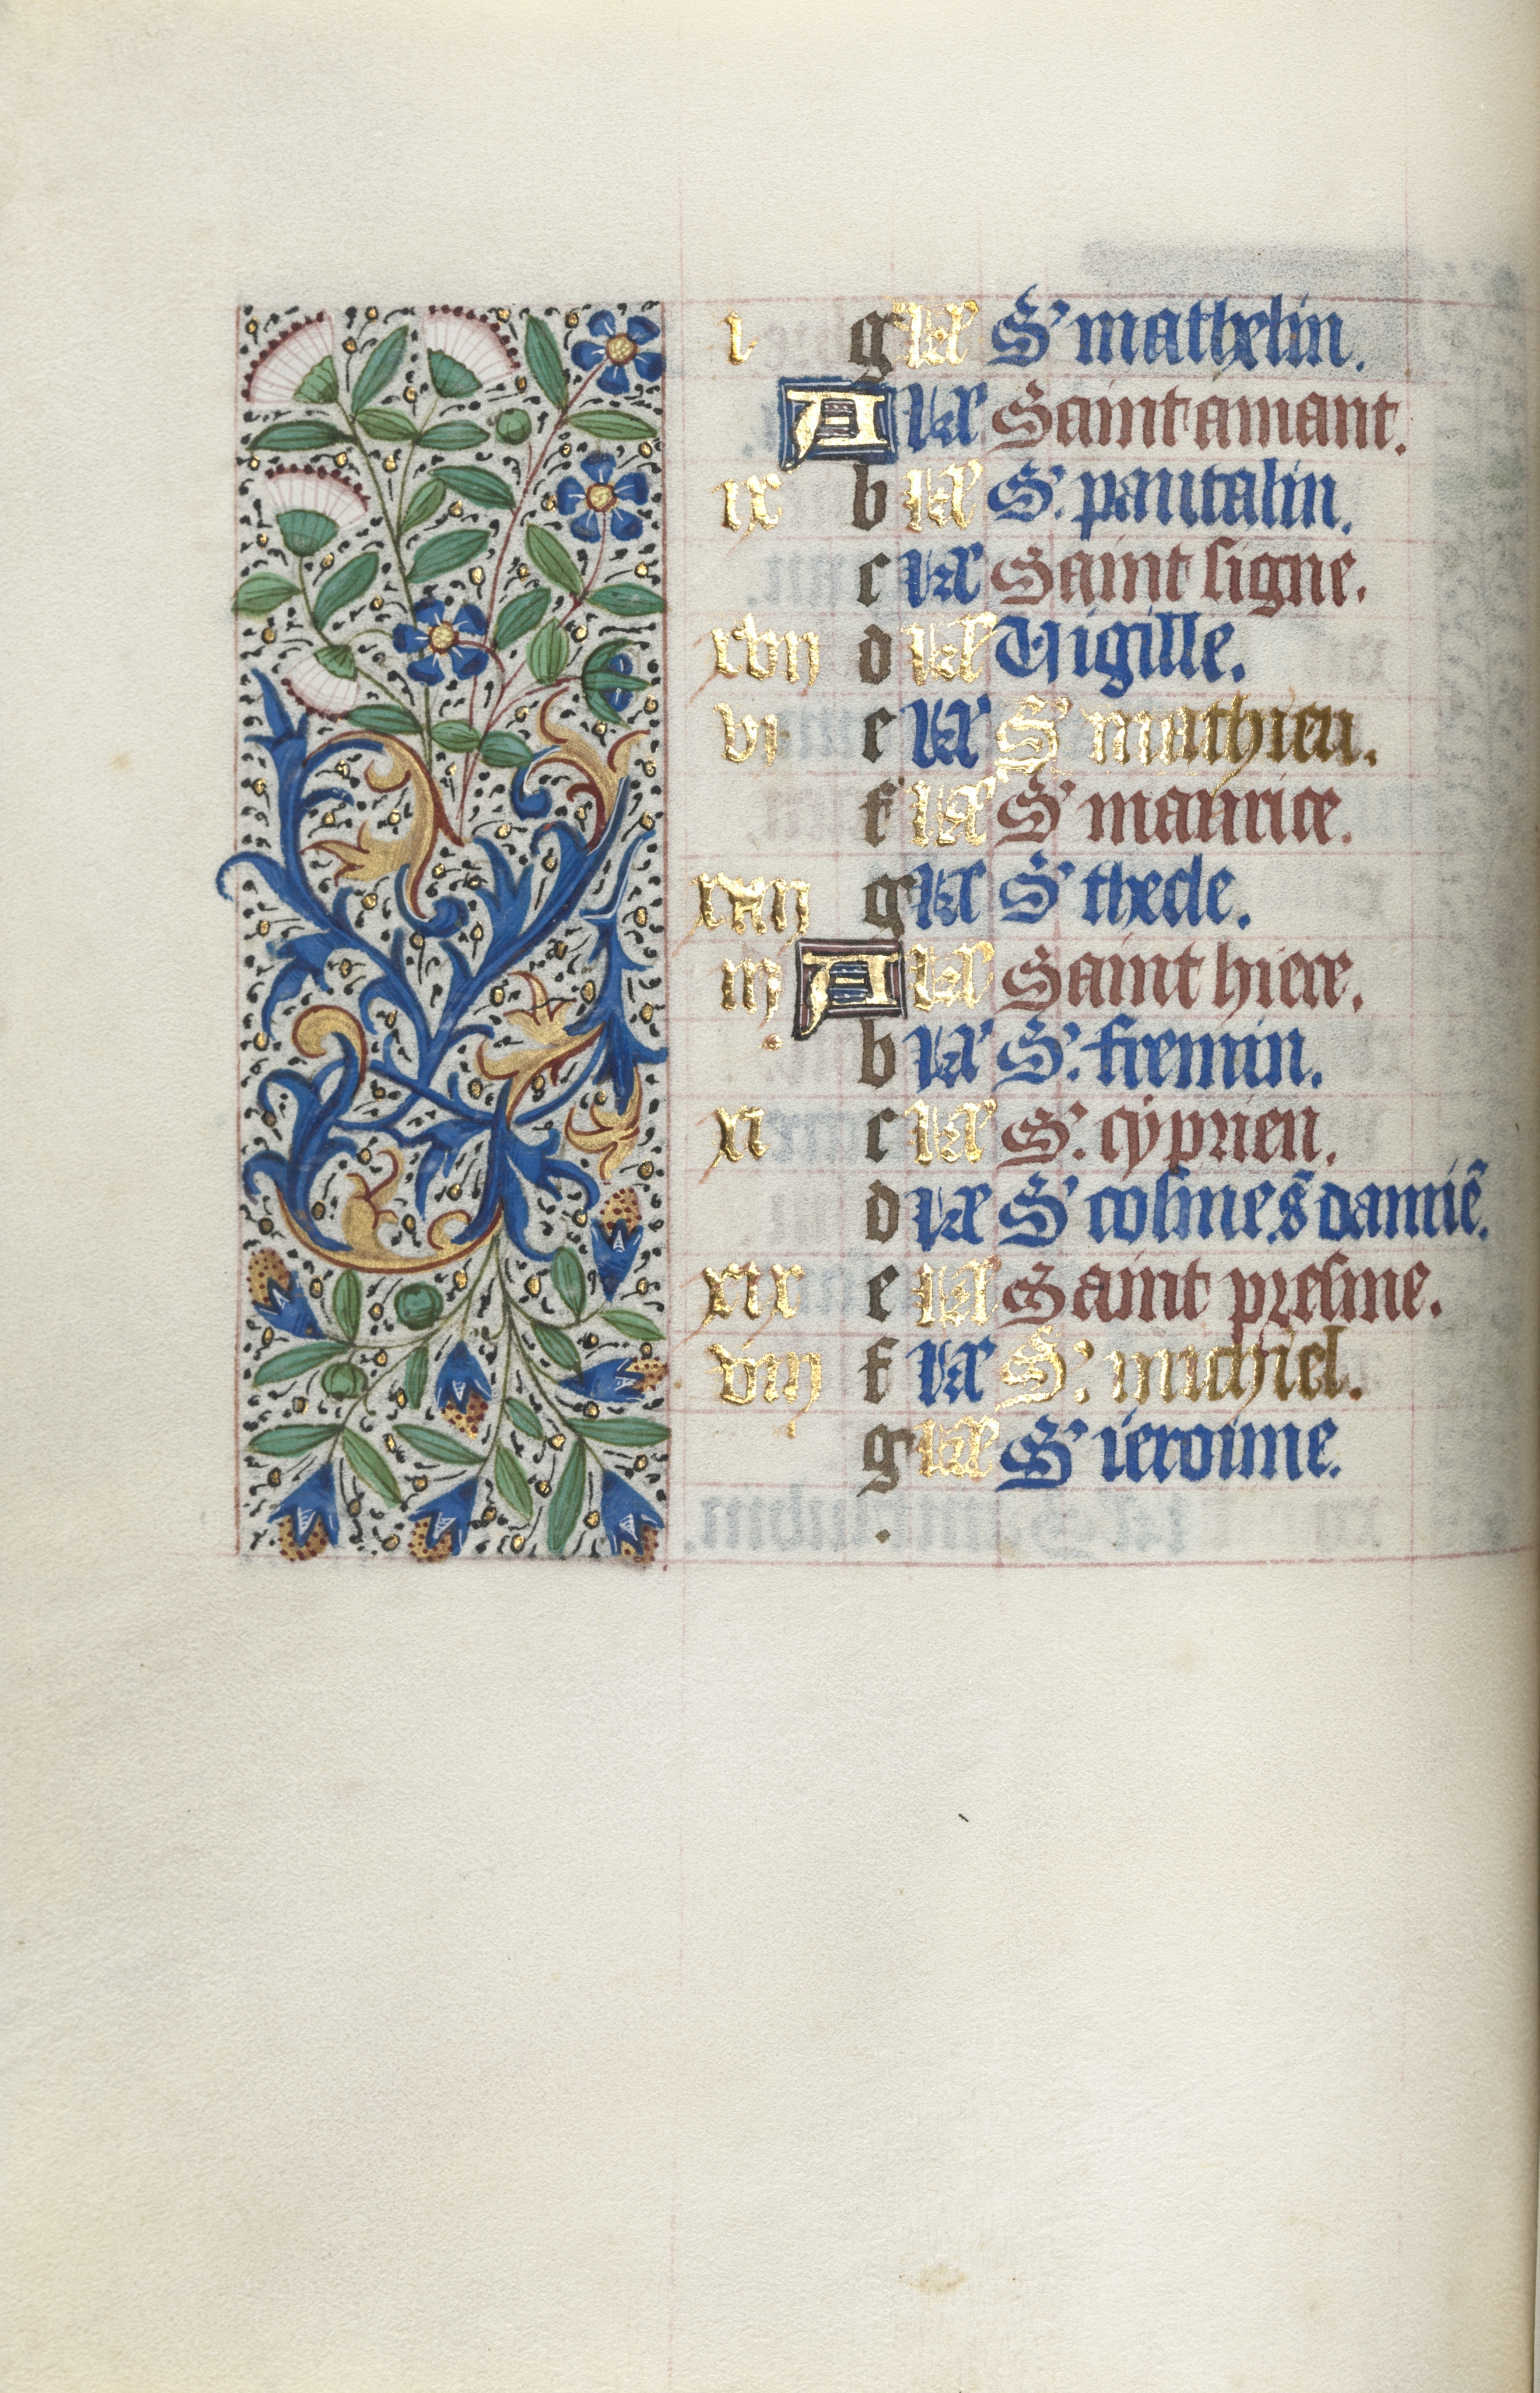 i g kł S' mathelin.
A kł Saint amant.
ix b kł S'. pantalin.
c kł Saint signe.
xvij d kł Vigille.
vi e kł S' mathieu.
f kł S' maurice.
xiiij g kł S' thecle.
iij A kł Saint hiere.
b kł S'. fremin.
xi c kł S'. cyprien.
d kł S' cosme. s̃ damiẽ.
xix e kł Saint presme.
viij f kł S'. michiel.
g kł S' ieroime.